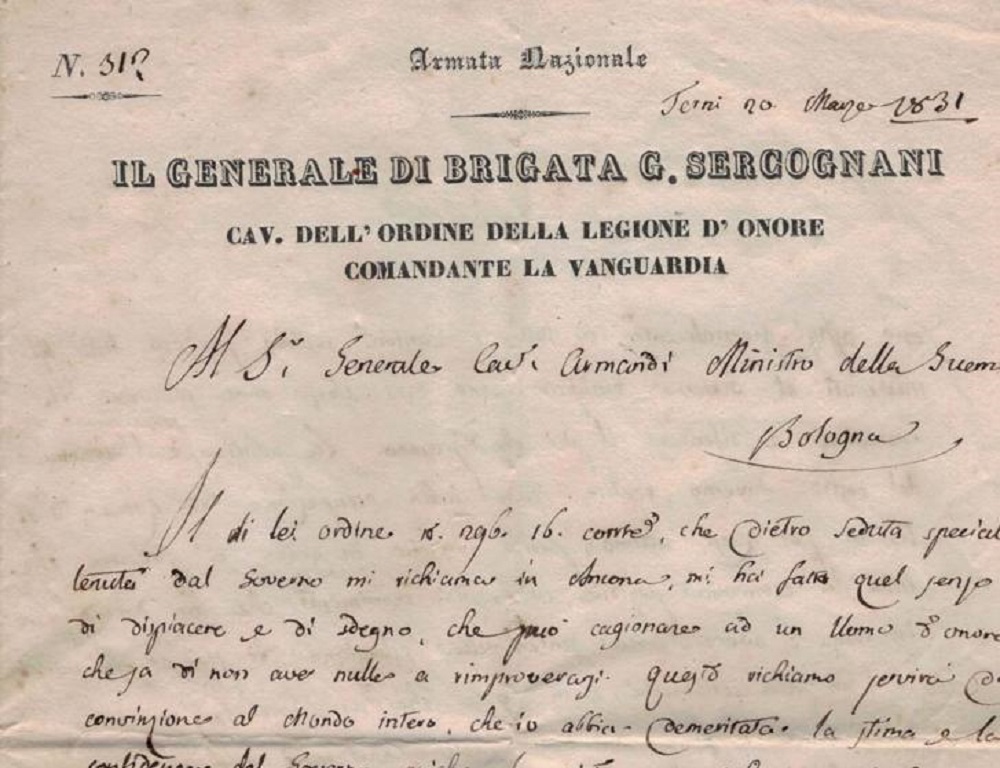 N. 312
Armata Nazionale
Terni 20 Marzo 1831
IL GENERALE DI BRIGATA G. SERCOGNANI
CAV. DELL' ORDINE DELLA LEGIONE D' ONORE
COMANDANTE LA VANGUARDIA
Al S.r Generale Cav.r Armandi Ministro della Guerr
Bologna
Il di lei ordine N. 296. 16. corr.e, che dietro seduta special
tenuta dal Governo mi richiama in Ancona, mi ha fatto quel senso
di dispiacere e di sdegno, che può cagionare ad un Uomo d'onore
che sa di non aver nulla a rimproverarsi. Questo richiamo servirà
convinzione al Mondo intero, che io abbia demeritata la stima e la
del